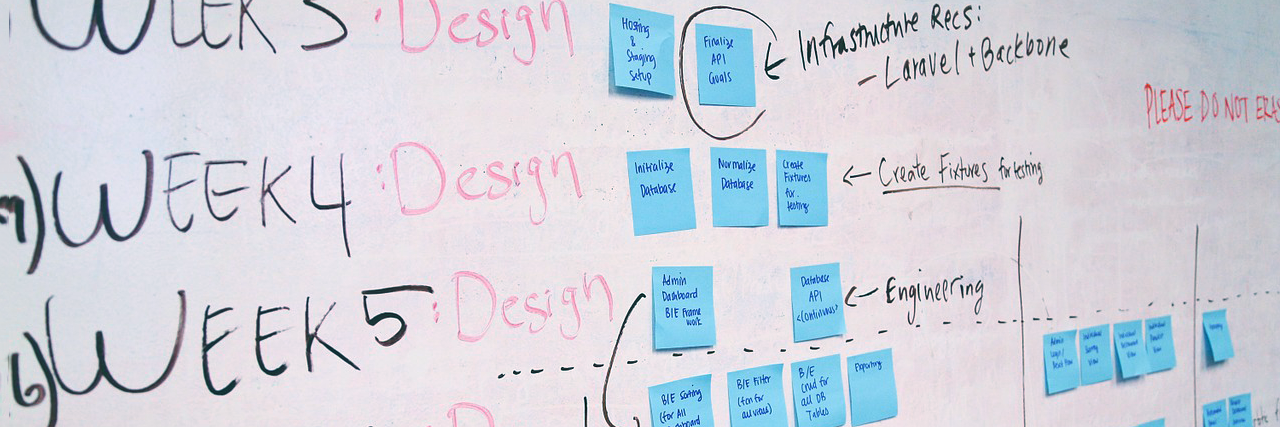 WEEK 3 : Design
Hosting
&
Staging
Setup
Finalize
API
Goals
Infrastructure Recs:
- Laravel + Backbone
PLEASE DO NOT
WEEK 4 : Design
Initialize
Database
Normalize
Database
Create
Fixtures
for
testing
Create Fixtures for testing
6) WEEK 5 : Design
Admin
Dashboard
B/E Frame
work
Database
API
<Continuous>
Engineering
B/E Sorting
(for All
B/E Filter
(on for
all views)
B/E
CRUD for
all DB
Tables
Reporting
Admin
Login/
View
View
View
View